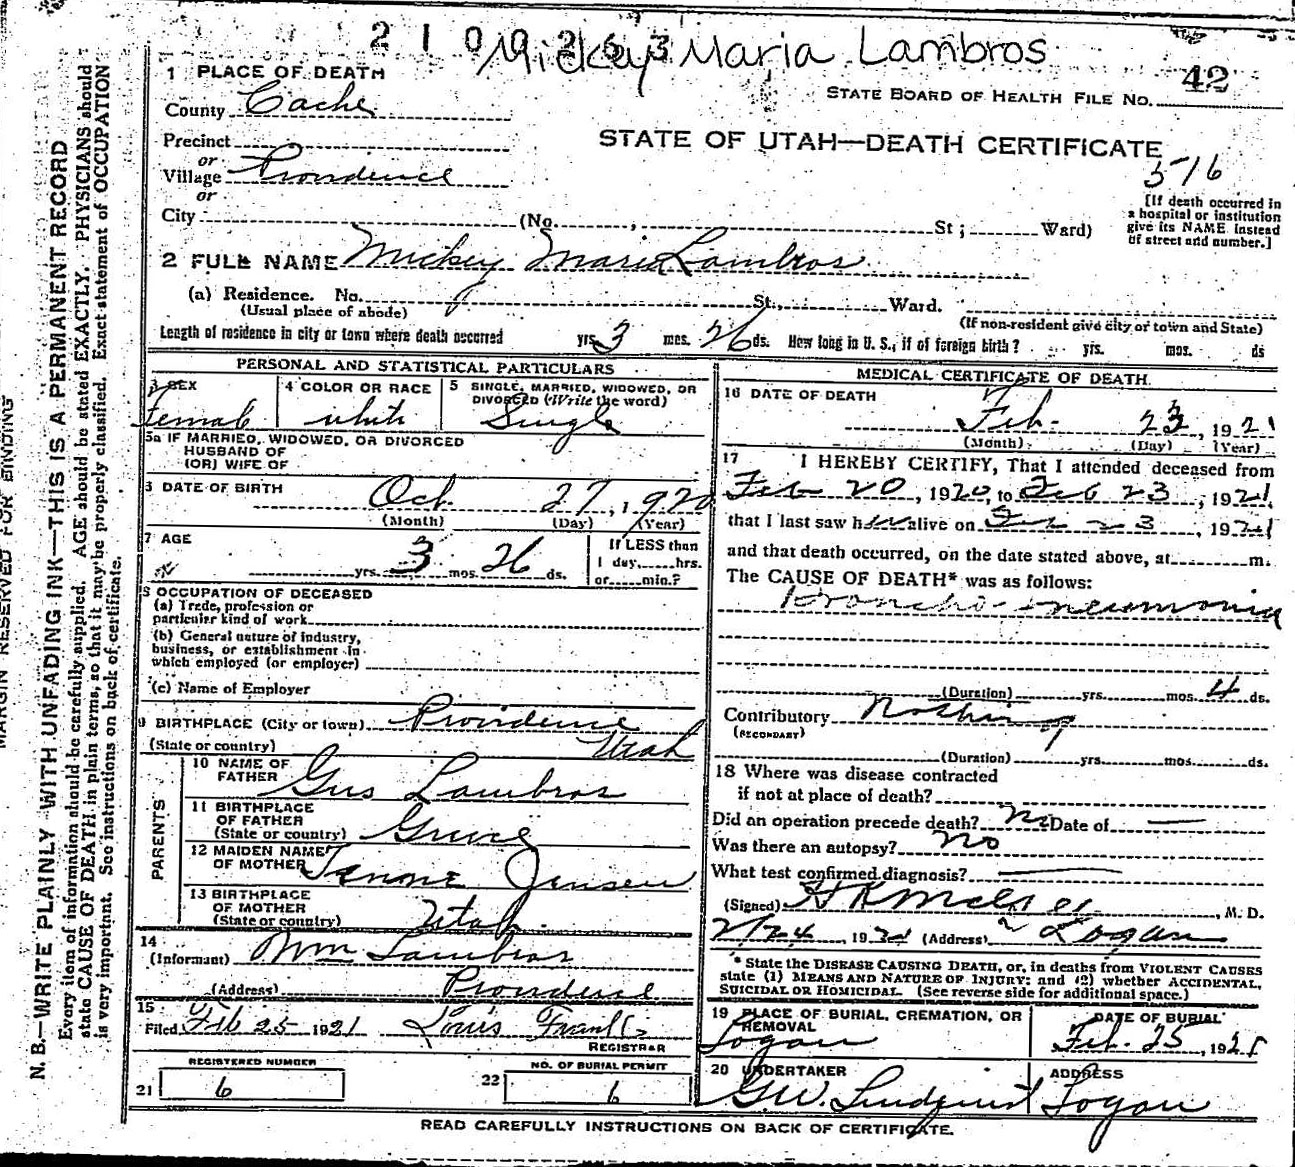 2 1 0 0 2 6 3 Mickey Maria Lambros
42
STATE BOARD OF HEALTH FILE NO.
1 PLACE OF DEATH
County Cache
STATE OF UTAH—DEATH CERTIFICATE
516
Precinct
or
Village Providence
or
City (No. , St ; Ward)
[If death occurred in
a hospital or institution
give its NAME instead
of street and number.]
2 FULL NAME Mickey Maria Lambros
(a) Residence. No. St., Ward.
(Usual place of abode) (If non-resident give city or town and State)
Length of residence in city or town where death occurred yrs. 3 mos. 26 ds. How long in U. S., if of foreign birth? yrs. mos. ds
PERSONAL AND STATISTICAL PARTICULARS
3 SEX
Female
4 COLOR OR RACE
white
5 SINGLE, MARRIED, WIDOWED, OR
DIVORCED (Write the word)
Single
5a IF MARRIED, WIDOWED, OR DIVORCED
HUSBAND OF
(OR) WIFE OF
DATE OF BIRTH Oct. 27, 1920
(Month) (Day) (Year)
7 AGE
yrs. 3 mos. 26 ds.
If LESS than
1 day, hrs.
or min.?
8 OCCUPATION OF DECEASED
(a) Trade, profession or
particular kind of work
(b) General nature of industry,
business, or establishment in
which employed (or employer)
(c) Name of Employer
9 BIRTHPLACE (City or town) Providence
(State or country) Utah
PARENTS
10 NAME OF
FATHER Gus Lambros
11 BIRTHPLACE
OF FATHER
(State or country) Greece
12 MAIDEN NAME
OF MOTHER Jensen
13 BIRTHPLACE
OF MOTHER
(State or country) Utah
14
(Informant) Wm Lambros
(Address) Providence
15
Filed Feb 25 1921 Louis
REGISTRAR
REGISTERED NUMBER
21 6
NO. OF BURIAL PERMIT
22 6
MEDICAL CERTIFICATE OF DEATH.
16 DATE OF DEATH
Feb. 23, 1921
(Month) (Day) (Year)
17 I HEREBY CERTIFY, That I attended deceased from
Feb 20, 1920, to Feb 23, 1921
that I last saw her alive on Feb 23, 1921
and that death occurred, on the date stated above, at m.
The CAUSE OF DEATH* was as follows:
Broncho-pneumonia
(Duration) yrs. mos. 4 ds.
Contributory Nothing
(SECONDARY)
(Duration) yrs. mos. ds.
18 Where was disease contracted
if not at place of death?
Did an operation precede death? No Date of —
Was there an autopsy? No
What test confirmed diagnosis? —
(Signed) , M. D.
2/24, 1921 (Address) Logan
* State the DISEASE CAUSING DEATH, or, in deaths from VIOLENT CAUSES
state (1) MEANS AND NATURE OF INJURY; and (2) whether ACCIDENTAL,
SUICIDAL OR HOMICIDAL. (See reverse side for additional space.)
19 PLACE OF BURIAL, CREMATION, OR
REMOVAL
Logan
DATE OF BURIAL
Feb. 25, 1921
20 UNDERTAKER
G.W. Lindquist
ADDRESS
Logan
READ CAREFULLY INSTRUCTIONS ON BACK OF CERTIFICATE.
MARGIN RESERVED FOR BINDING
N. B.—WRITE PLAINLY WITH UNFADING INK—THIS IS A PERMANENT RECORD
Every item of information should be carefully supplied. AGE should be stated EXACTLY. PHYSICIANS should
state CAUSE OF DEATH in plain terms, so that it may be properly classified. Exact statement of OCCUPATION
is very important. See instructions on back of certificate.